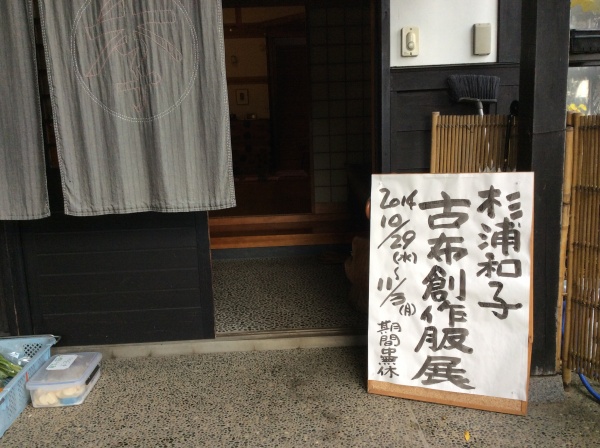 杉浦和子
古布創作服展
2014
10/29(水)
〜
11/3(月)
期間無休